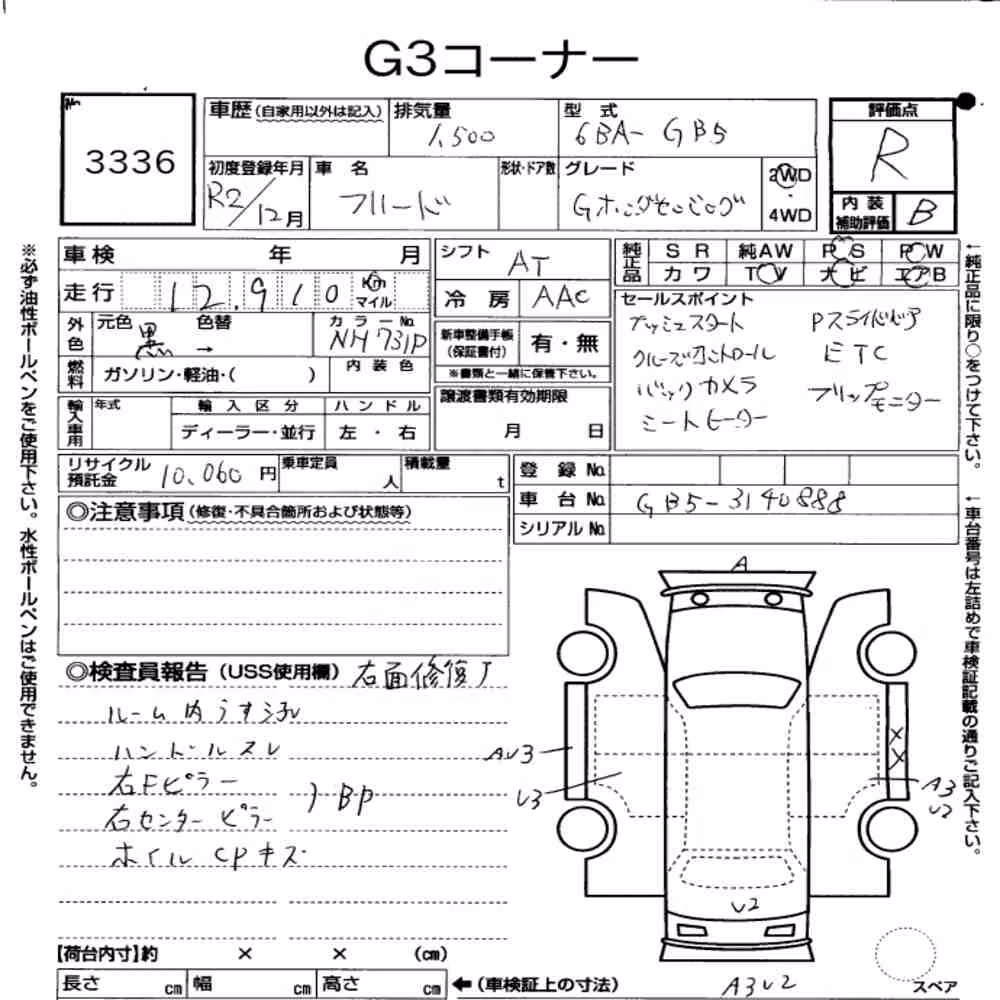 G3コーナー
No.
3336
車歴 (自家用以外は記入)
排気量
1,500
型 式
6BA- GB5
評価点
R
初度登録年月
R2/12月
車 名
フリード
形状・ドア数
グレード
Gホンダセンシング
2WD
4WD
内装補助評価
B
車検 年 月
走行 12,910 Km マイル
シフト
AT
冷 房
AAC
純正品
SR 純AW PS PW
カワ TV ナビ エアB
外色
元色 色替
黒 →
カラーNo.
NH731P
新車整備手帳
(保証書付)
有・無
※書類と一緒に保管下さい。
セールスポイント
プッシュスタート Pスライドドア
クルーズコントロール ETC
バックカメラ フリップモニター
シートヒーター
燃料
ガソリン・軽油・( )
内装色
輸入車用
年式
輸入区分
ハンドル
ディーラー・並行
左・右
譲渡書類有効期限
月 日
リサイクル預託金
10,060円
乗車定員
人
積載量
t
登録No.
車台No.
GB5-3140888
シリアルNo.
◎注意事項 (修復・不具合箇所および状態等)
◎検査員報告 (USS使用欄) 右面修復了
ルーム内うす汚れ
ハンドルスレ
右Fピラー
右センターピラー
)BP
ホイルCPキズ
【荷台内寸】約 × × (cm)
長さ cm 幅 cm 高さ cm
←(車検証上の寸法)
A
AU3
U3
X
X
A3
U2
U2
A3U2
スペア
※必ず油性ボールペンをご使用下さい。水性ボールペンはご使用できません。
←純正品に限り○をつけて下さい。
←車台番号は左詰めで車検証記載の通りご記入下さい。